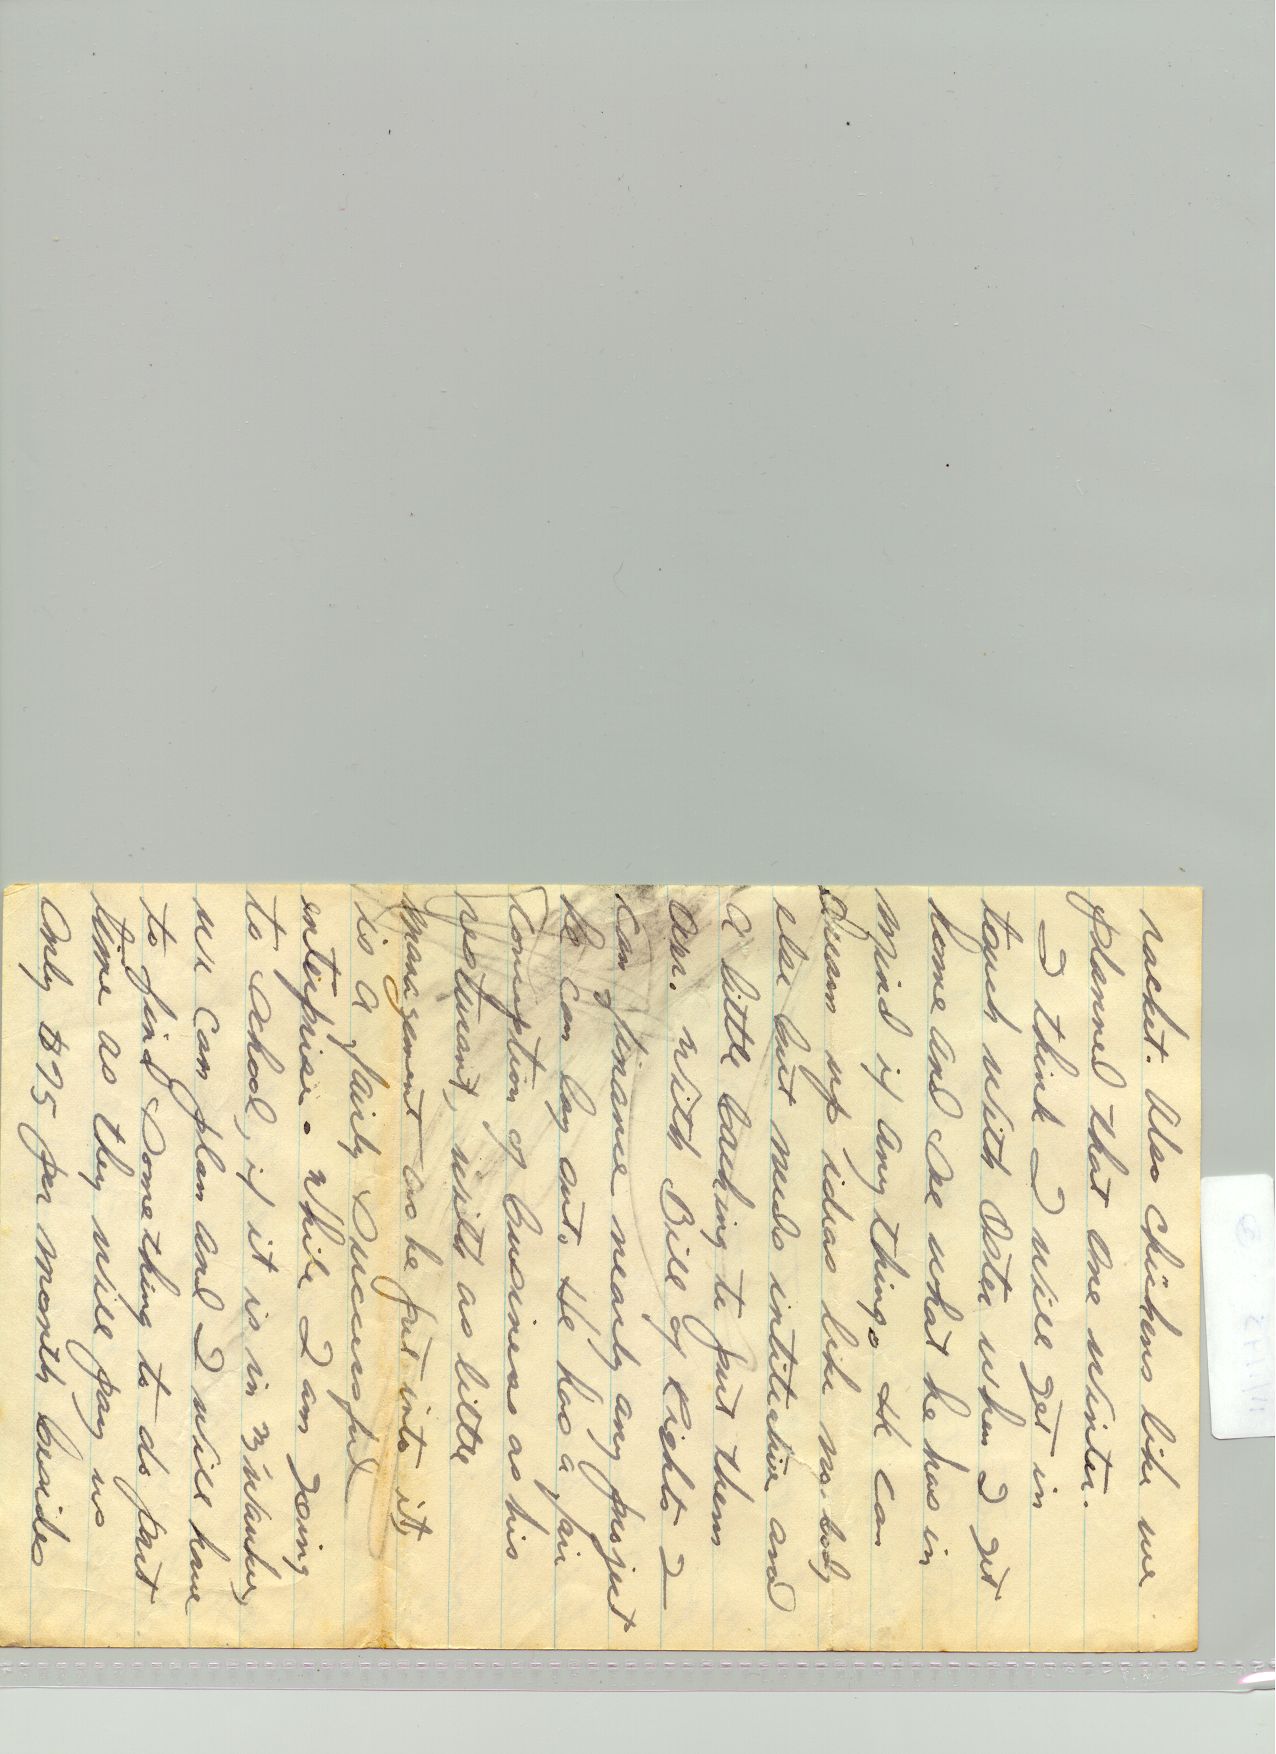 racket. Also chickens like we
planned that one winter.
I think I will get in
touch with Oster when I get
home and see what he has in
mind if any thing. He can
dream up ideas like no-body
else but needs intitiative and
a little backing to put them
over. With Bill of Rights I
can finance nearly any project
he can lay out. He has a fair
conception of business as his
resturant, with as little
management as he put into it,
is a fairly successful
enterprise. While I am going
to school, if it is in Milwaukee,
we can plan and I will have
to find something to do part
time as they will pay us
only $75 per month besides